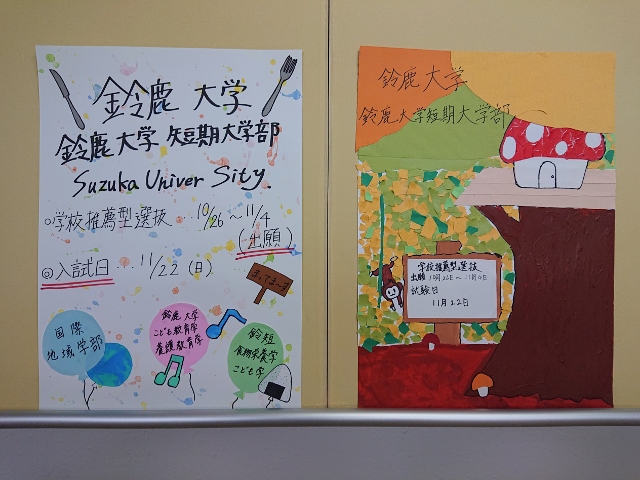 鈴鹿 大学
鈴鹿大学 短期大学部
Suzuka Univer Sity.
○学校推薦型選抜 … 10/26 ~ 11/4
(出願)
◎入試日 … 11/22 (日)
まってま~す
国際
地域学部
鈴鹿 大学
こども教育学
養護教育学
鈴短
食物栄養学
こども学
鈴鹿 大学
鈴鹿大学短期大学部
学校推薦型選抜
出願 10月26日~11月4日
試験日
11月22日